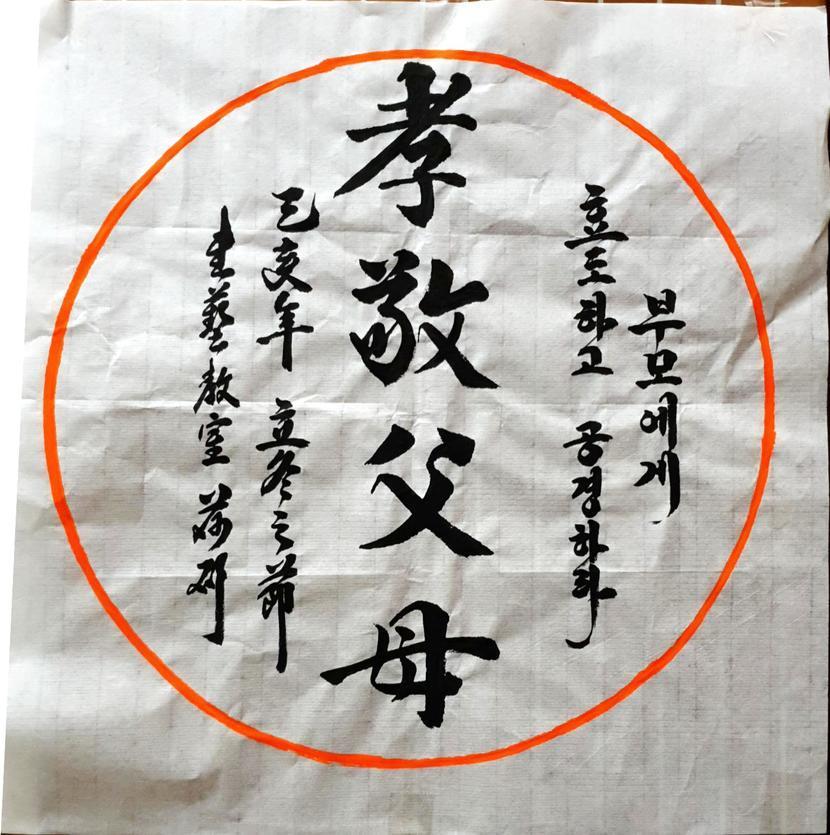 부모에게
효도하고 공경하라
孝敬父母
己亥年 立冬之節
書藝教室